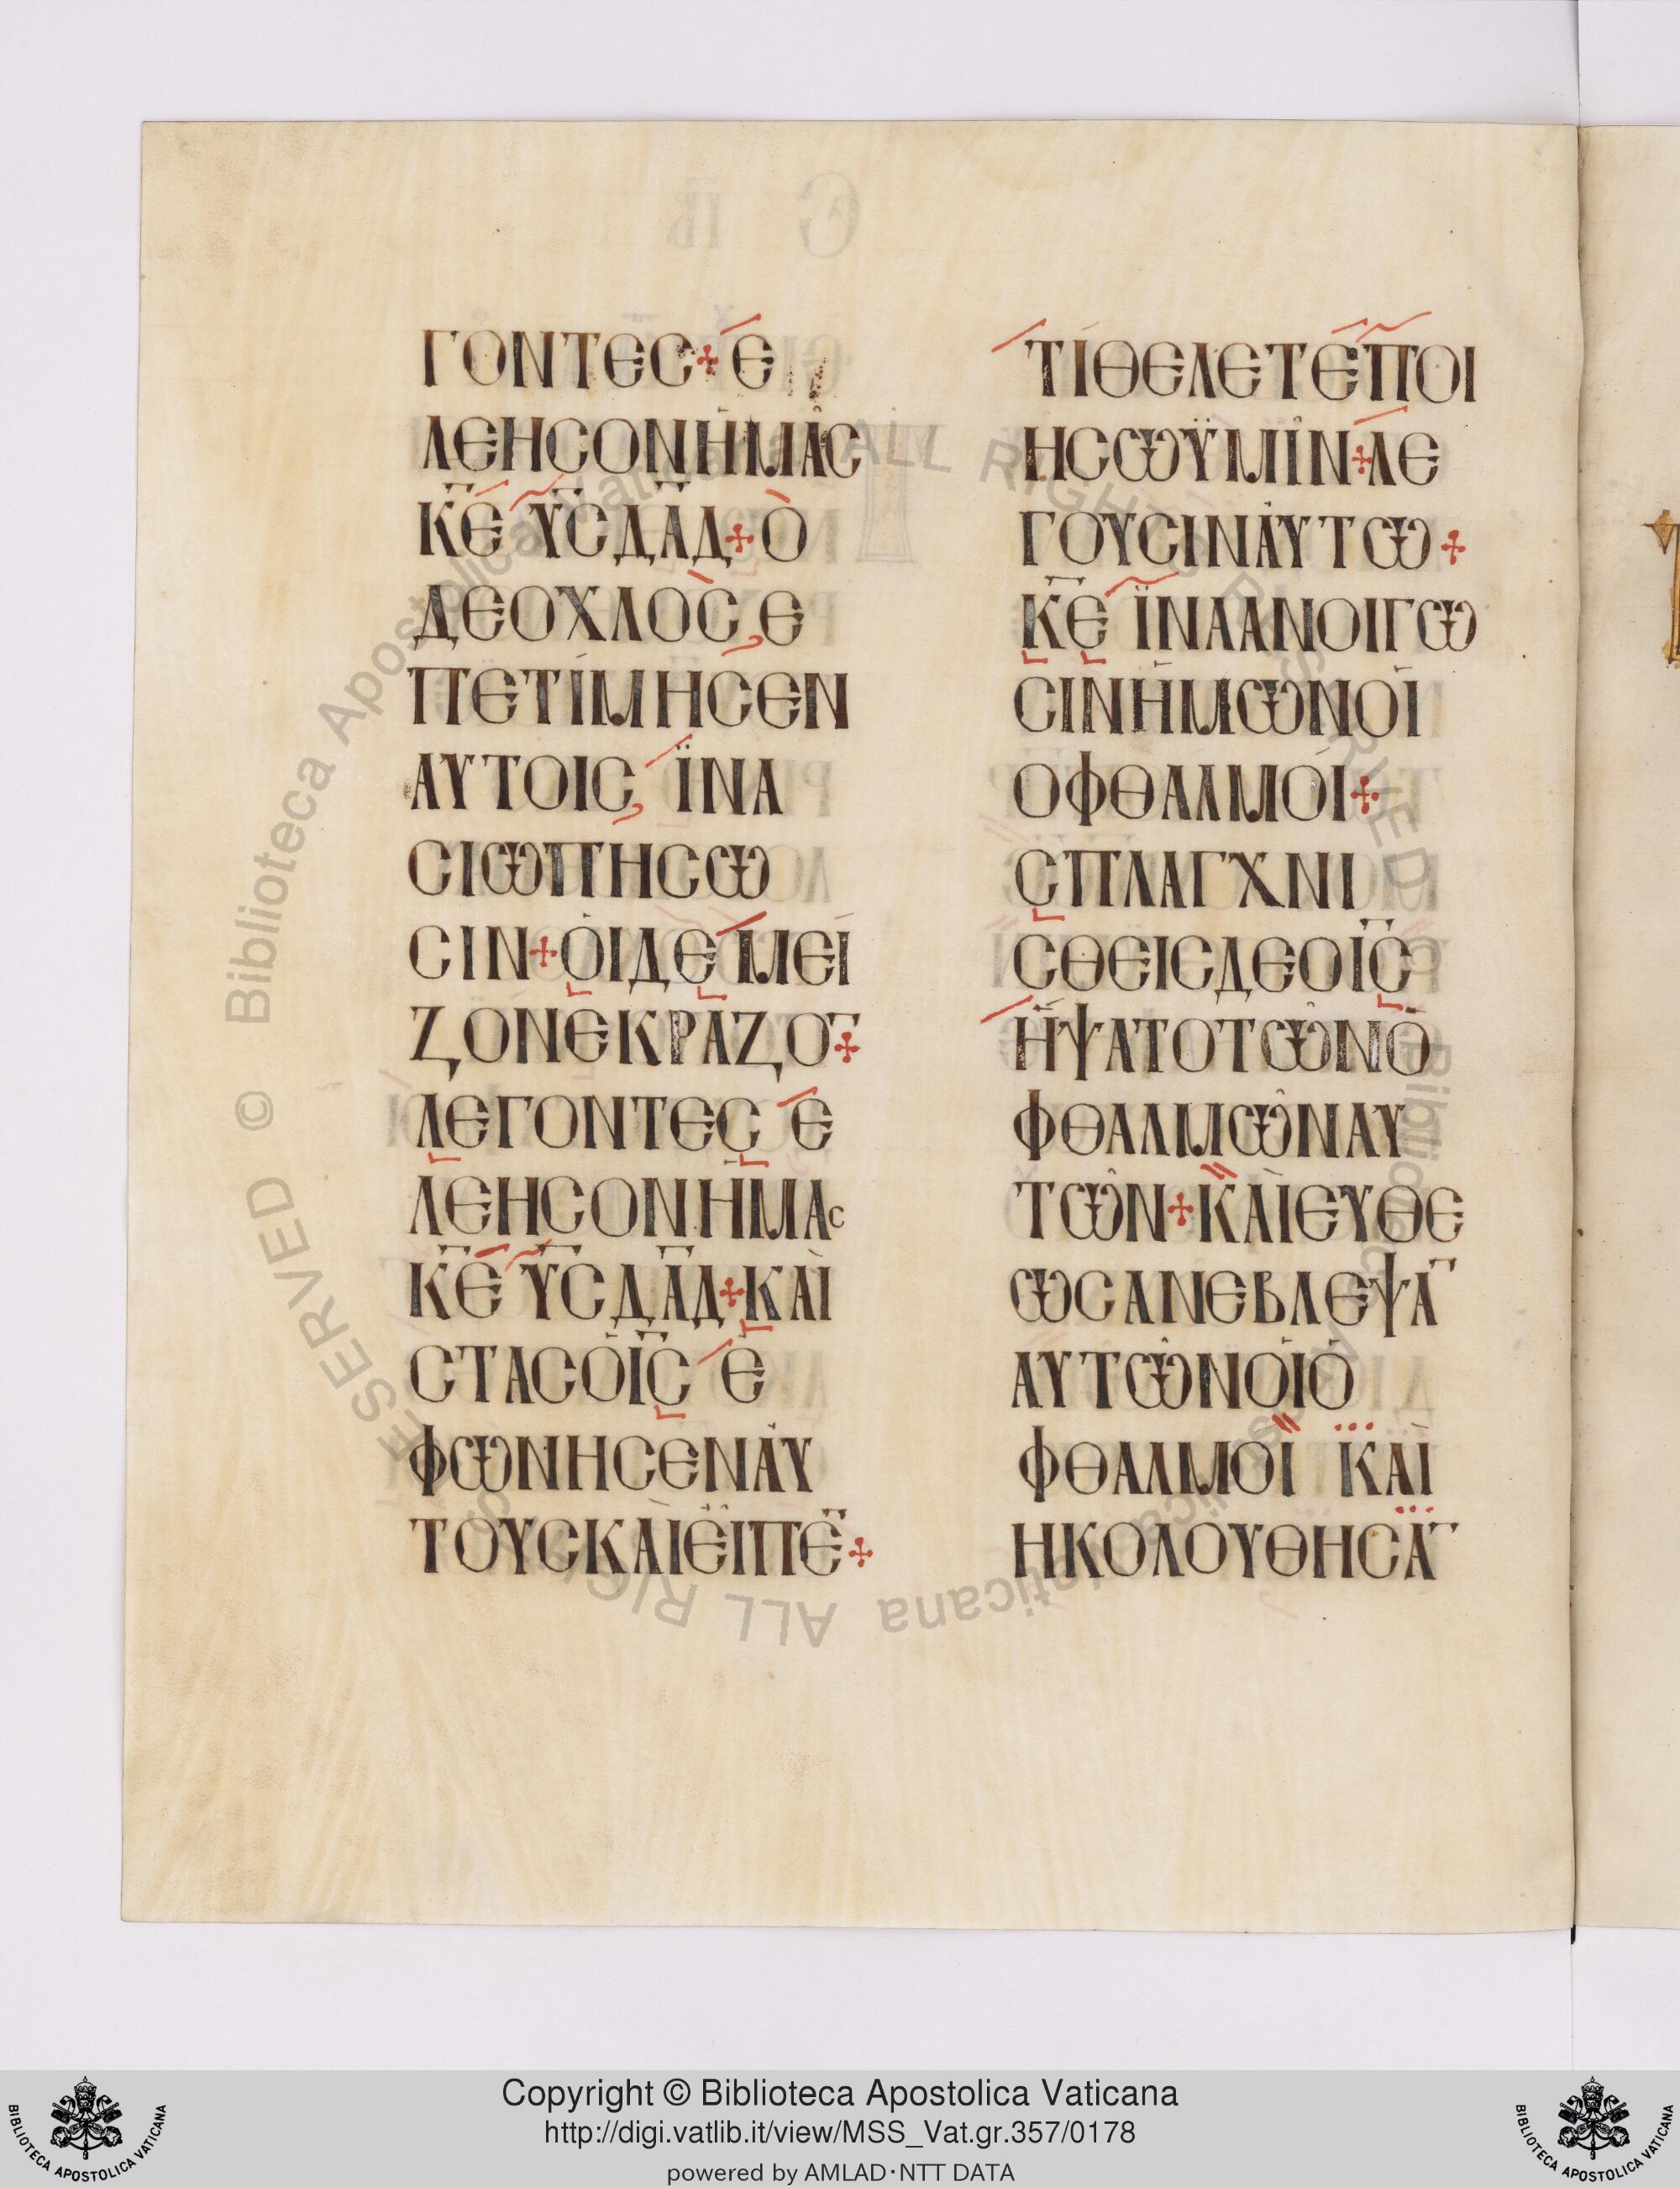 ΓΟΝΤΕϹ+Ε
ΛΕΗϹΟΝΗΜΑϹ
Κ̅Ε̅ Υ̅Ϲ̅ Δ̅Α̅Δ̅+Ο
ΔΕΟΧΛΟϹ Ε
ΠΕΤΙΜΗϹΕΝ
ΑΥΤΟΙϹ ΪΝΑ
ϹΙΩΠΗϹΩ
ϹΙΝ+ΟΙΔΕ ΜΕΙ
ΖΟΝΕΚΡΑΖΟ̅+
ΛΕΓΟΝΤΕϹ Ε
ΛΕΗϹΟΝΗΜΑϹ
Κ̅Ε̅ Υ̅Ϲ̅ Δ̅Α̅Δ̅+ΚΑΙ
ϹΤΑϹΟΙ̅Ϲ̅ Ε
ΦΩΝΗϹΕΝΑΥ
ΤΟΥϹΚΑΙΕΙΠΕ̅+
ΤΙΘΕΛΕΤΕΠΟΙ
ΗϹΩΫΜΙΝ+ΛΕ
ΓΟΥϹΙΝΑΥΤΩ+
Κ̅Ε̅ ΪΝΑΑΝΟΙΓΩ
ϹΙΝΗΜΩΝΟΙ
ΟΦΘΑΛΜΟΙ+
ϹΠΛΑΓΧΝΙ
ϹΘΕΙϹΔΕΟΙ̅Ϲ̅
ΗΨΑΤΟΤΩΝΟ
ΦΘΑΛΜΩΝΑΥ
ΤΩΝ+ΚΑΙΕΥΘΕ
ΩϹΑΝΕΒΛΕΨΑ̅
ΑΥΤΩΝΟΙΟ
ΦΘΑΛΜΟΙ ΚΑΙ
ΗΚΟΛΟΥΘΗϹΑ̅
Copyright © Biblioteca Apostolica Vaticana
http://digi.vatlib.it/view/MSS_Vat.gr.357/0178
powered by AMLAD·NTT DATA
BIBLIOTECA APOSTOLICA VATICANA
BIBLIOTECA APOSTOLICA VATICANA